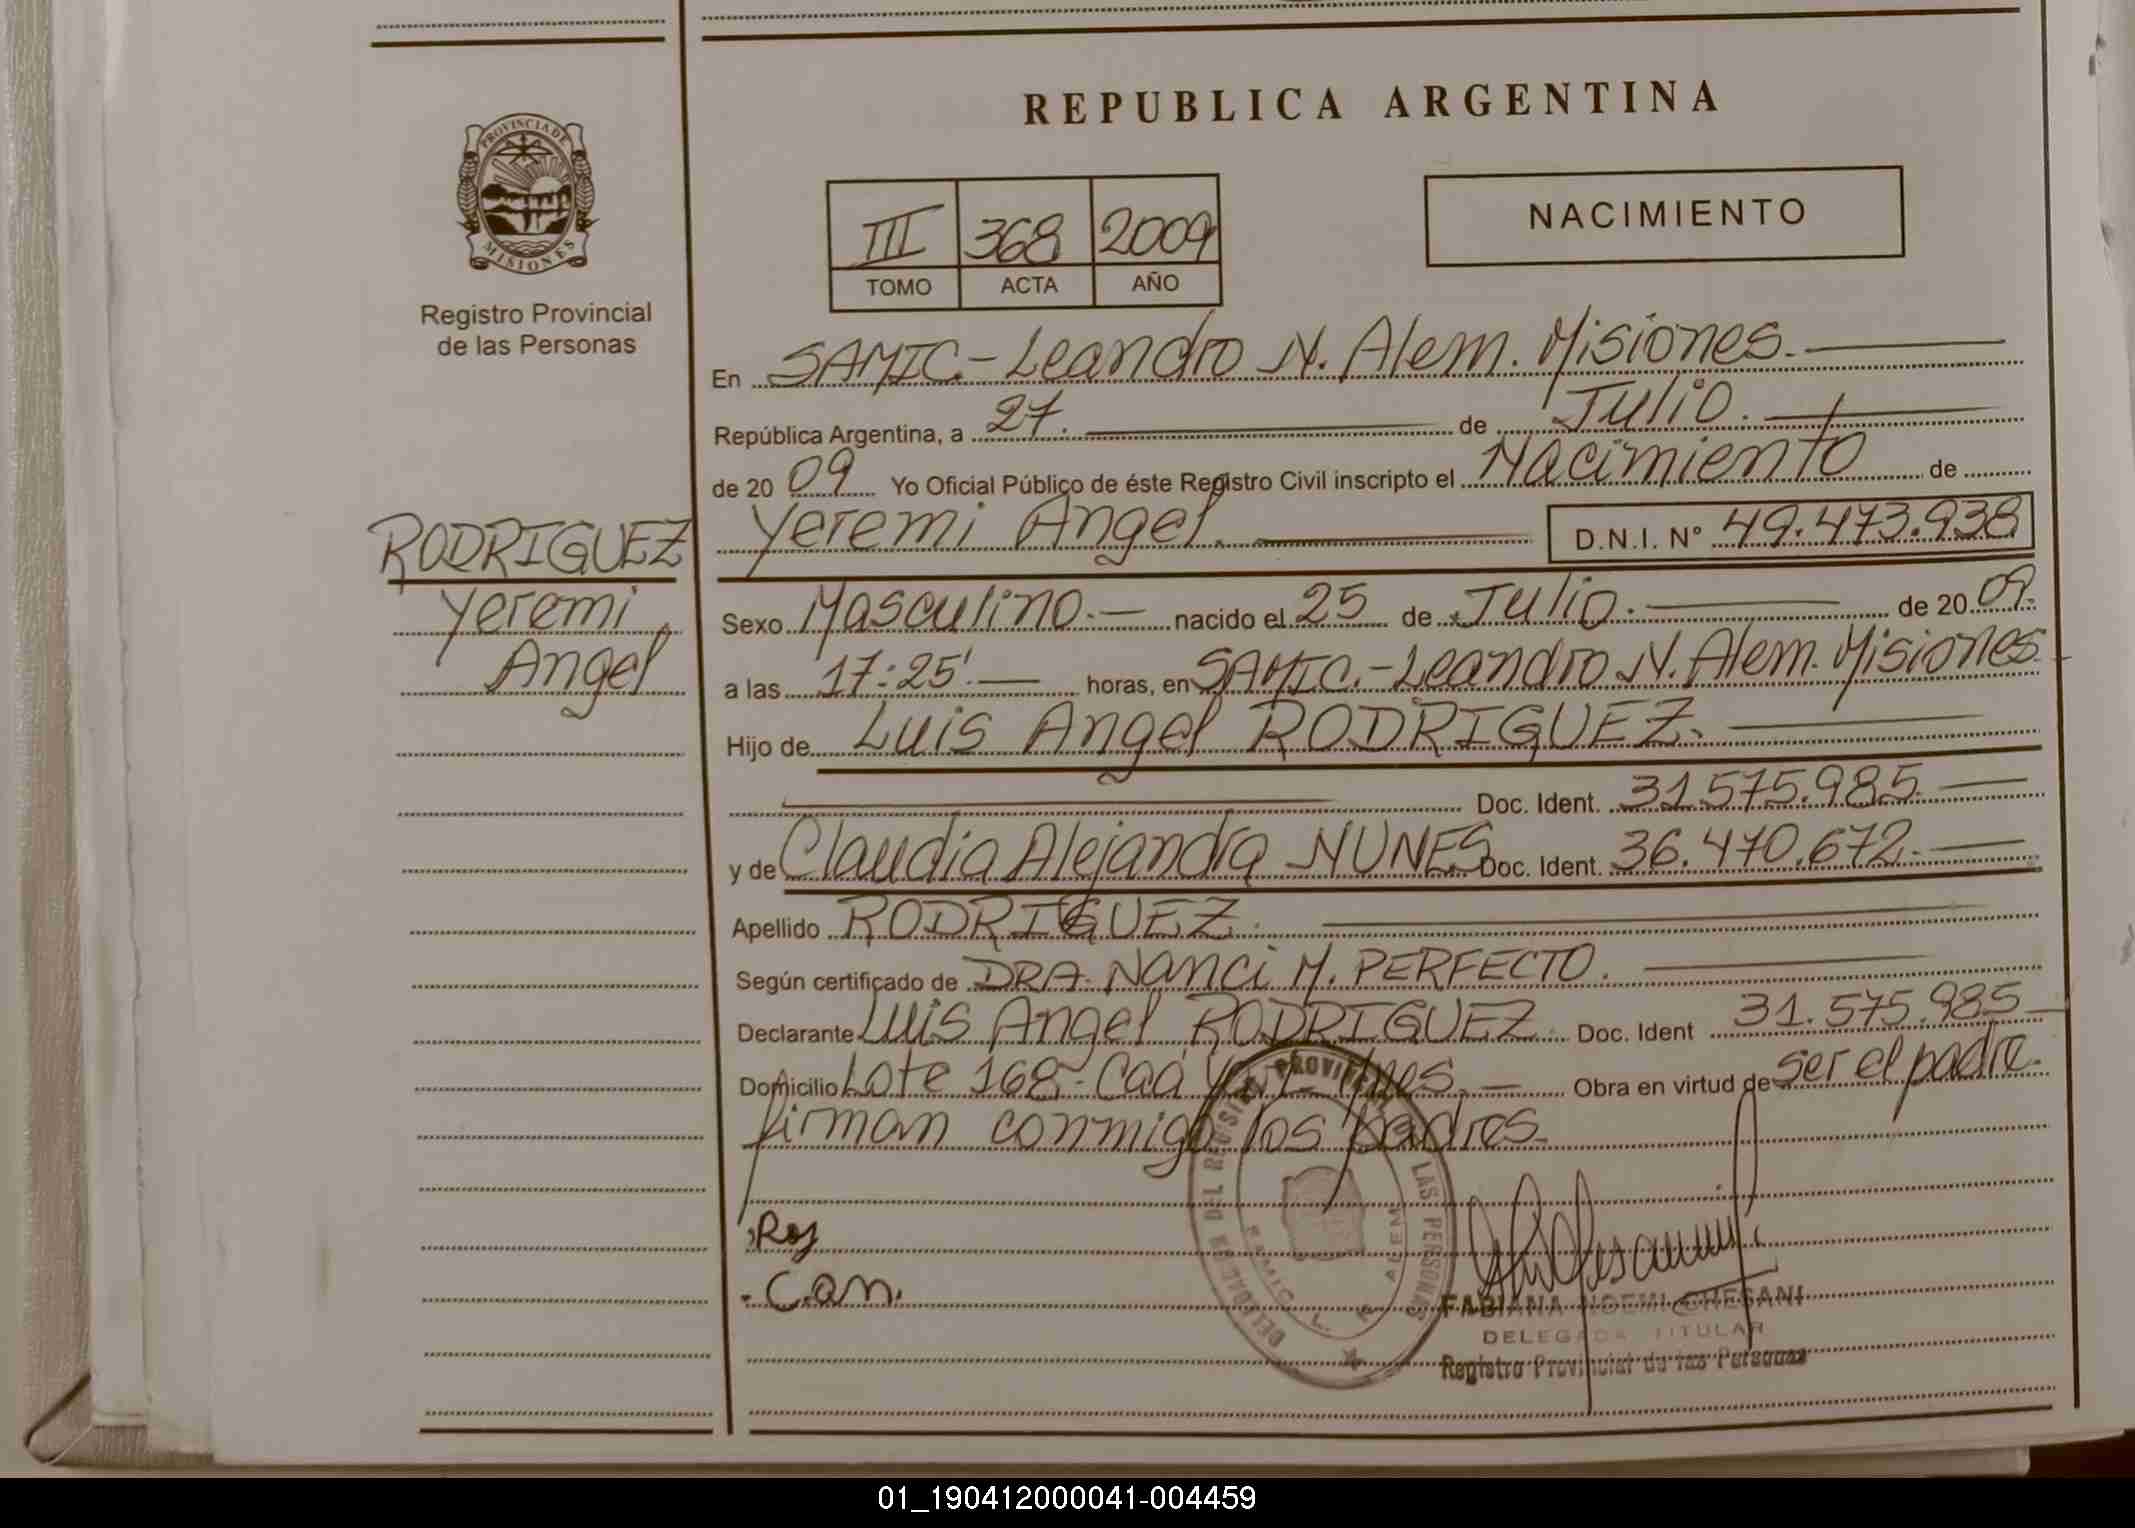 REPUBLICA ARGENTINA
PROVINCIA DE
MISIONES
Registro Provincial
de las Personas
III 368 2009
TOMO ACTA AÑO
NACIMIENTO
En SAMIC.- Leandro N. Alem. Misiones.
República Argentina, a 27. de Julio.
de 20 09 Yo Oficial Público de éste Registro Civil inscripto el Nacimiento de
Yeremi Angel. D.N.I. Nº 49.473.938
RODRIGUEZ
Yeremi
Angel
Sexo Masculino.- nacido el 25 de Julio. de 20 09.
a las 17:25'. horas, en SAMIC.- Leandro N. Alem. Misiones.
Hijo de Luis Angel RODRIGUEZ.
Doc. Ident. 31.575.985.
y de Claudia Alejandra NUNES Doc. Ident. 36.470.672.
Apellido RODRIGUEZ.
Según certificado de DRA. Nanci M. PERFECTO.
Declarante Luis Angel RODRIGUEZ. Doc. Ident 31.575.985
Domicilio Lote 168- Caá Obra en virtud de ser el padre.
firman conmigo los padres.
DELEGADA DEL REGISTRO PROVINCIAL LAS PERSONAS
SAMIC. L. N. ALEM
FABIANA NOEMI CHESANI
DELEGADA TITULAR
Registro Provincial de las Personas
01_190412000041-004459